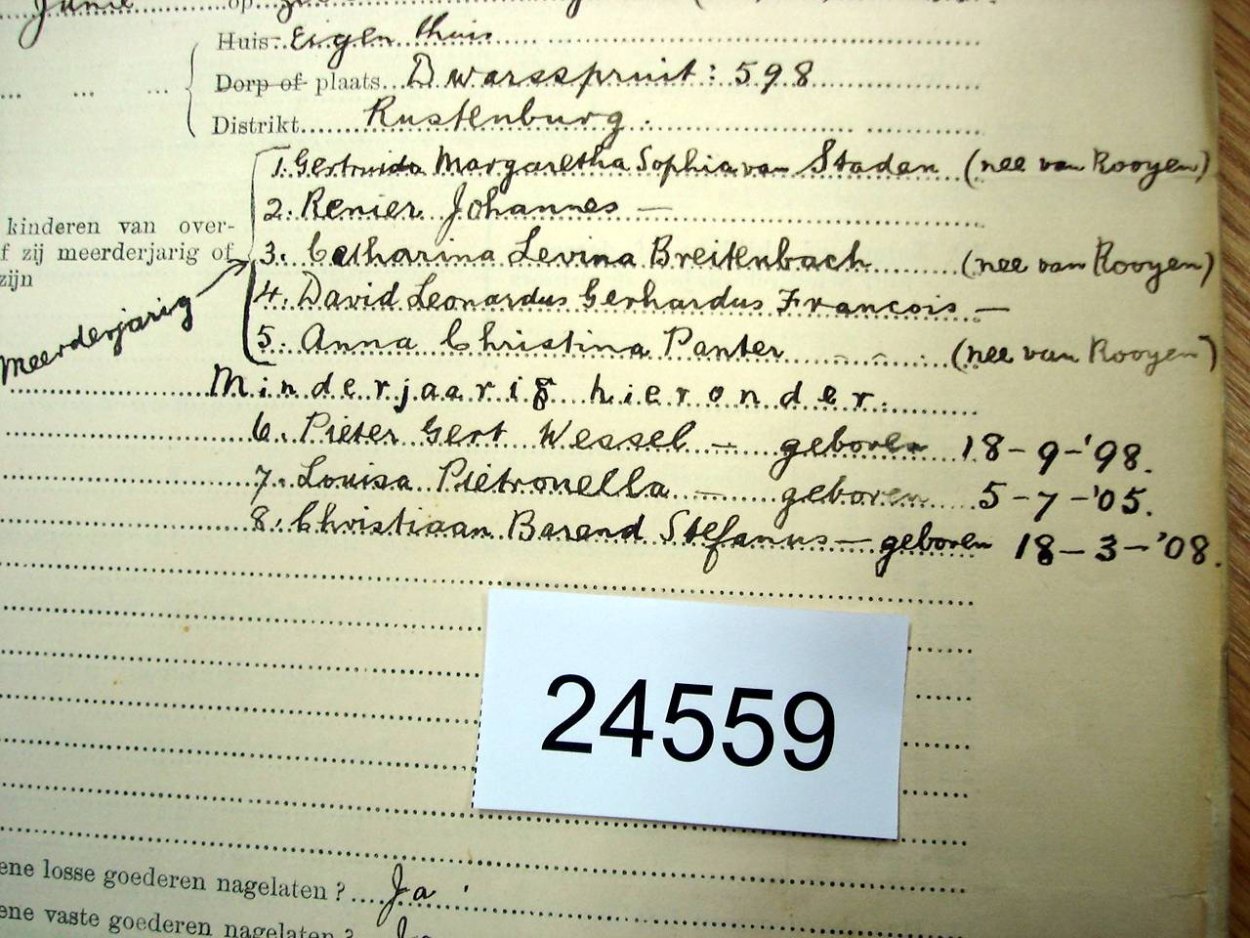 Junie op
Huis: Eigen thuis
Dorp of plaats Dwarsspruit: 598
Distrikt Rustenburg.
1. Gertruida Margaretha Sophia van Staden (nee van Rooyen)
2. Renier Johannes —
kinderen van over-
f zij meerderjarig of
zijn
3. Catharina Levina Breitenbach (nee van Rooyen)
4. David Leonardus Gerhardus Francois —
Meerderjarig
5. Anna Christina Panter (nee van Rooyen)
Minderjaarig hieronder.
6. Pieter Gert Wessel — geboren 18-9-'98.
7. Louisa Pietronella — geboren 5-7-'05.
8. Christiaan Barend Stefanus — geboren 18-3-'08.
24559
ene losse goederen nagelaten? Ja
ene vaste goederen nagelaten?